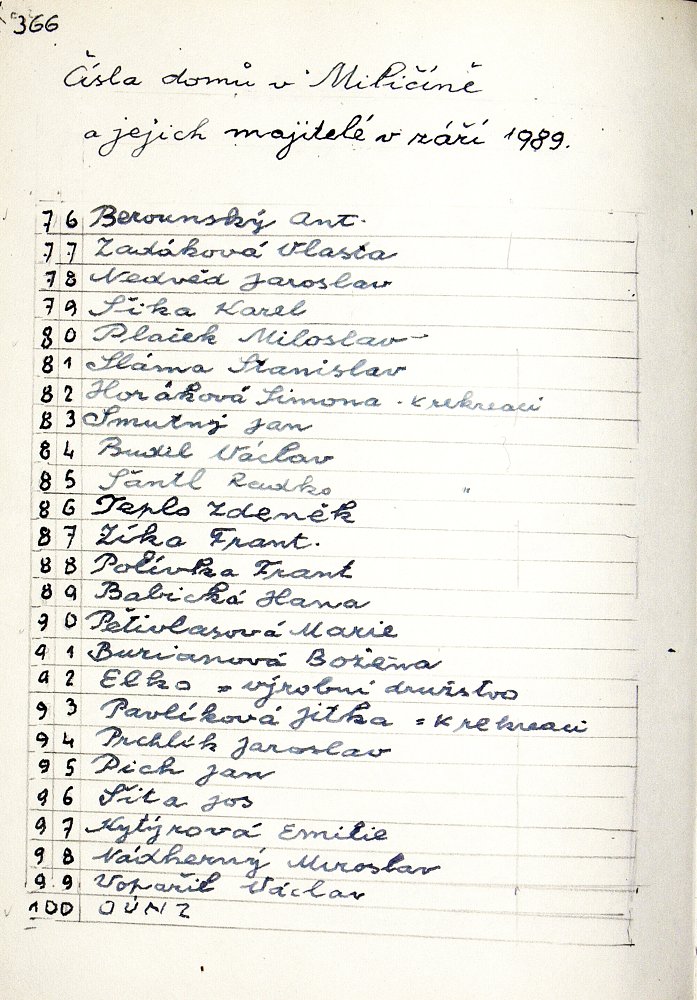 366
Čísla domů v Miličíně
a jejich majitelé v září 1989.
76 Berounský Ant.
77 Zadáková Vlasta
78 Nedvěd Jaroslav
79 Šika Karel
80 Plaček Miloslav
81 Sláma Stanislav
82 Horáková Simona - k rekreaci
83 Smutný Jan
84 Budil Václav
85 Šantl Radko "
86 Teplo Zdeněk
87 Zíka Frant.
88 Polívka Frant
89 Babická Hana
90 Pětivlasová Marie
91 Burianová Božena
92 Elko = výrobní družstvo
93 Pavlíková Jitka = k rekreaci
94 Prchlík Jaroslav
95 Pich Jan
96 Šíta Jos
97 Kytýrová Emilie
98 Nádherný Miroslav
99 Vopařil Václav
100 OÚNZ